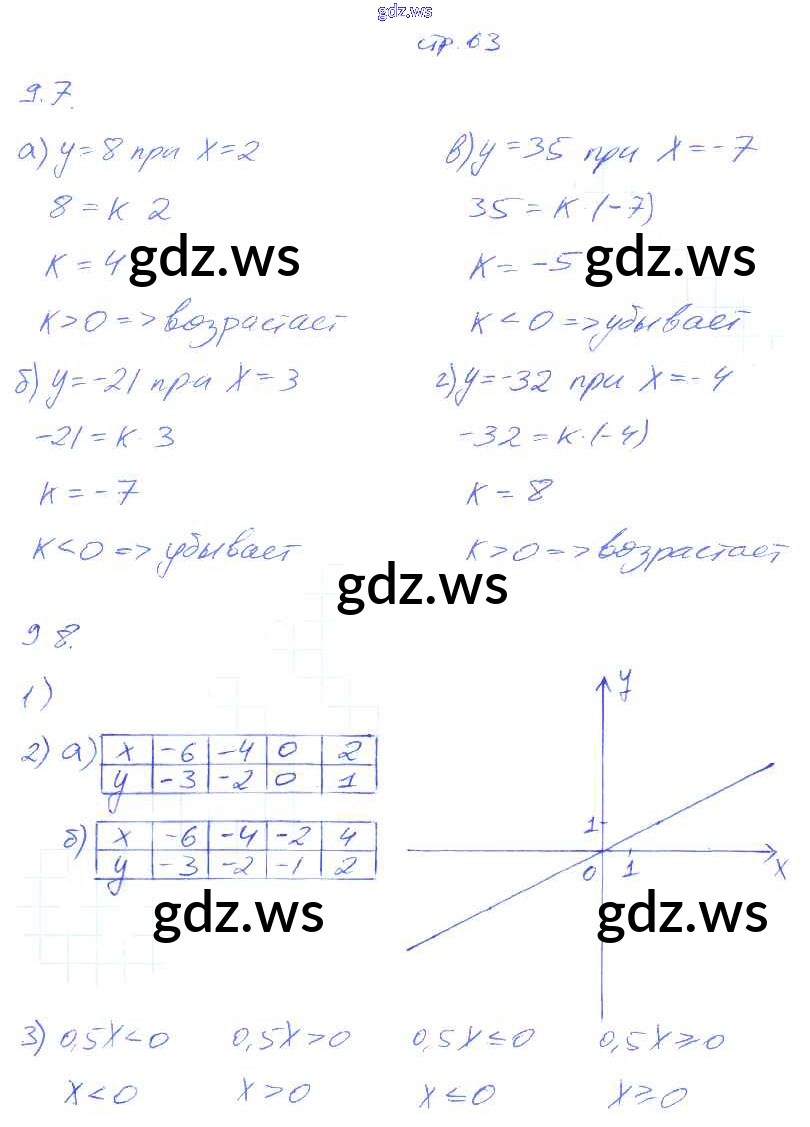 gdz.ws
стр. 63
9.7.
а) y = 8 при x = 2
8 = k 2
k = 4
k > 0 => возрастает
б) y = -21 при x = 3
-21 = k · 3
k = -7
k < 0 => убывает
в) y = 35 при x = -7
35 = k · (-7)
k = -5
k < 0 => убывает
г) y = -32 при x = -4
-32 = k · (-4)
k = 8
k > 0 => возрастает
gdz.ws
gdz.ws
gdz.ws
9 8.
1)
2) а) x -6 -4 0 2
y -3 -2 0 1
б) x -6 -4 -2 4
y -3 -2 -1 2
y
1
0 1 x
gdz.ws
gdz.ws
3) 0,5x < 0 0,5x > 0 0,5x ≤ 0 0,5x ≥ 0
x < 0 x > 0 x ≤ 0 x ≥ 0